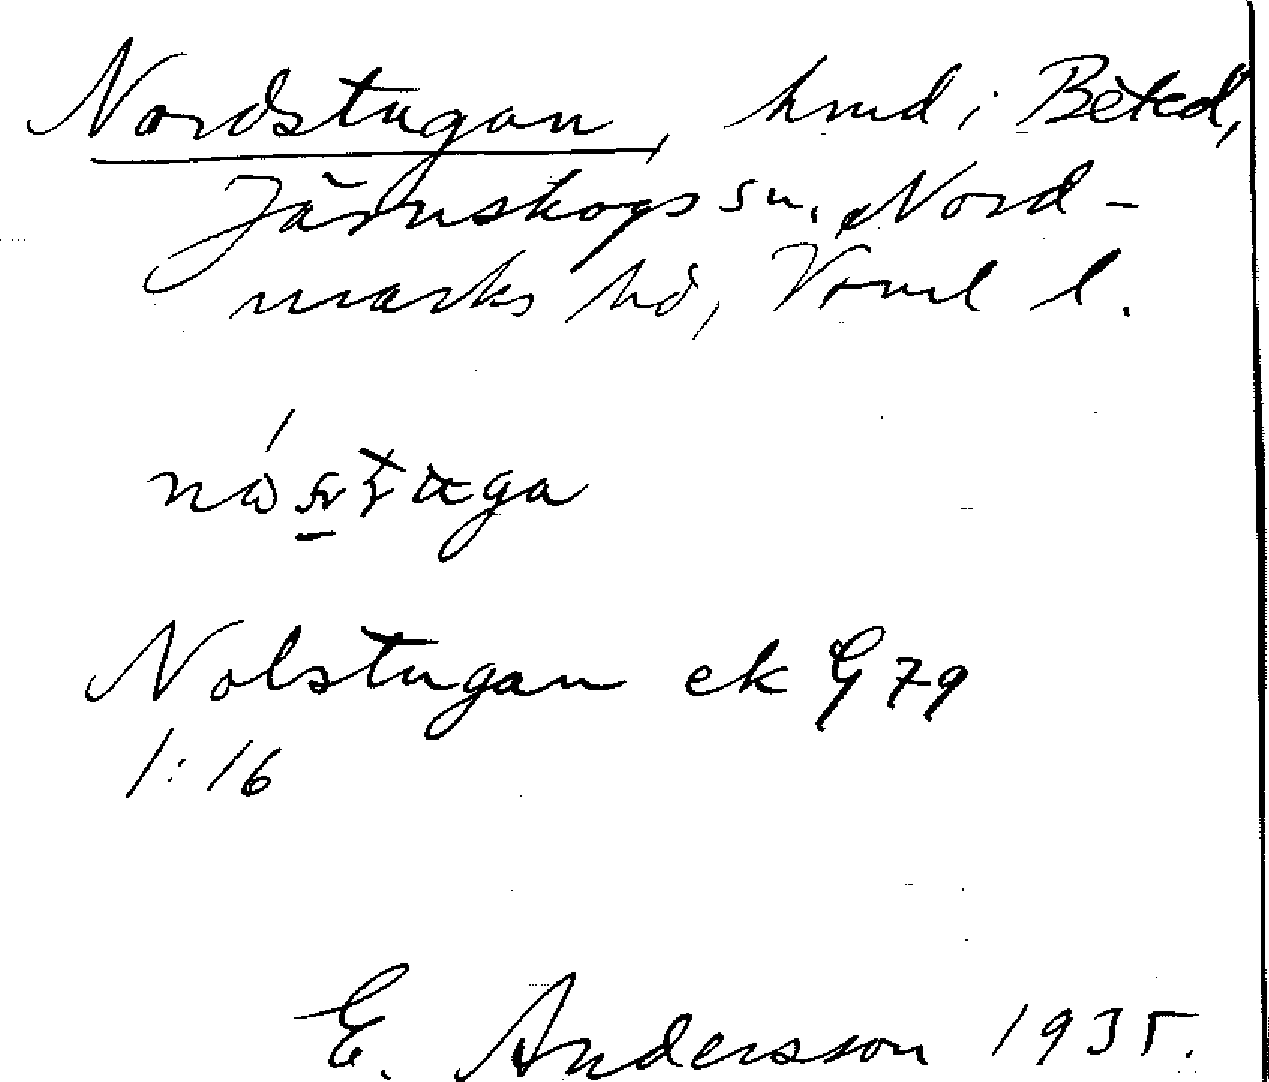 Nordstugan, hmd i Beted,
Järnskogs sn, Nord-
marks hd, Vrml l.
Nolstugan ek G 79
1:16
E. Andersson 1935.